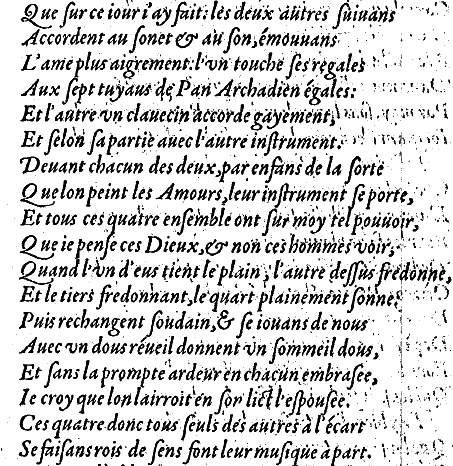 Que ſur ce iour i'ay fait: les deux autres ſuiuans
Accordent au ſonet & au ſon, émouuans
L'ame plus aigrement: l'vn touche ſes regales
Aux ſept tuyaus de Pan Archadien égales:
Et l'autre vn clauecin accorde gayement,
Et ſelon ſa partie auec l'autre inſtrument.
Deuant chacun des deux, par enfans de la ſorte
Que lon peint les Amours, leur inſtrument ſe porte,
Et tous ces quatre enſemble ont ſur moy tel pouuoir,
Que ie penſe ces Dieux, & non ces hommes voir,
Quand l'vn d'eus tient le plain, l'autre deſſus fredonne,
Et le tiers fredonnant, le quart plainement ſonne,
Puis rechangent ſoudain, & ſe iouans de nous
Auec vn dous réueil donnent vn ſommeil dous,
Et ſans la prompte ardeur en chacun embraſee,
Ie croy que lon lairroit en ſon lict l'eſpouſee.
Ces quatre donc tous ſeuls des autres à l'écart
Se faiſans rois de ſens font leur muſique à part.